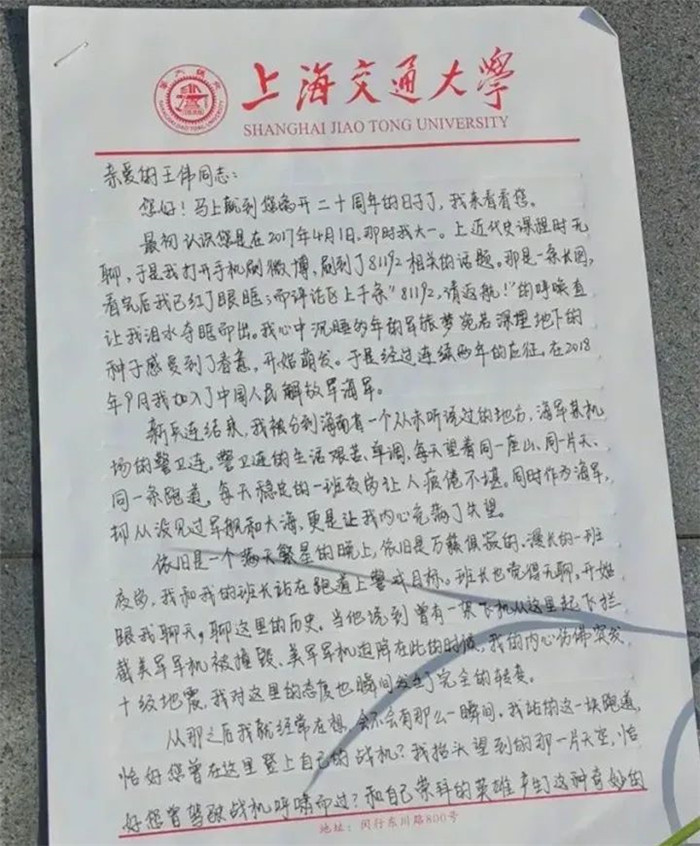 上海交通大學
SHANGHAI JIAO TONG UNIVERSITY
SHANGHAI JIAO TONG UNIVERSITY
亲爱的王伟同志：
您好！马上就到您离开二十周年的日子了，我来看看您。
最初认识您是在2017年4月1日，那时我大一。上近代史课程时无
聊，于是我打开手机刷微博，刷到了81192相关的话题。那是一条长图，
看完后我已红了眼眶；而评论区上千条“81192，请返航！”的呼唤直
让我泪水夺眶而出。我心中沉睡多年的军旅梦宛若深埋地下的
种子感受到了春意，开始萌发。于是经过连续两年的应征，在2018
年9月我加入了中国人民解放军海军。
新兵连结束，我被分到海南省一个从未听说过的地方，海军某机
场的警卫连。警卫连的生活艰苦、单调，每天望着同一座山、同一片天、
同一条跑道，每天稳定的一班夜岗让人疲倦不堪。同时作为海军，
却从没见过军舰和大海，更是让我内心充满了失望。
依旧是一个满天繁星的晚上，依旧是万籁俱寂的、漫长的一班
夜岗，我和我的班长站在跑道上警戒目标。班长也觉得无聊，开始
跟我聊天，聊这里的历史。当他说到曾有一架飞机从这里起飞拦
截美军军机被撞毁、美军军机迫降在此的时候，我的内心仿佛突发
十级地震，我对这里的态度也瞬间发生了完全的转变。
从那之后我就经常在想，会不会有那么一瞬间，我站的这一块跑道，
恰好您曾在这里登上自己的战机？我抬头望到的那一片天空，恰
好您曾驾驶战机呼啸而过？和自己崇拜的英雄产生这种奇妙的
地址：闵行东川路800号